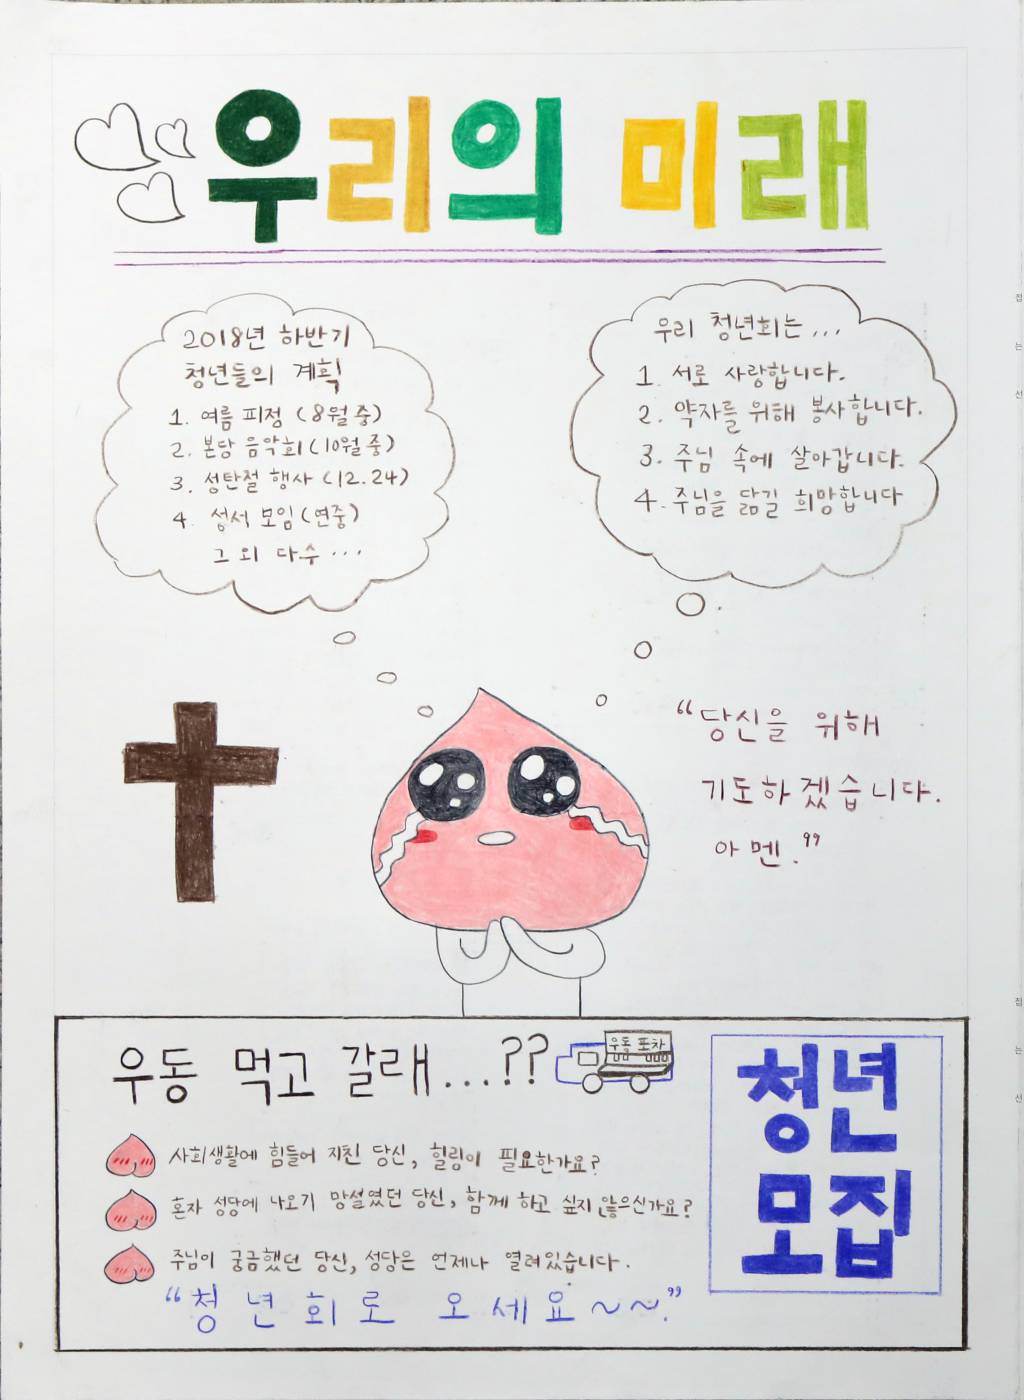 우리의 미래
2018년 하반기
청년들의 계획
1. 여름 피정 (8월 중)
2. 본당 음악회 (10월 중)
3. 성탄절 행사 (12.24)
4. 성서 모임 (연중)
그 외 다수...
우리 청년회는...
1. 서로 사랑합니다.
2. 약자를 위해 봉사합니다.
3. 주님 속에 살아갑니다.
4. 주님을 닮길 희망합니다
“당신을 위해
기도하겠습니다.
아멘.”
우동 먹고 갈래...??
우동 포차
사회생활에 힘들어 지친 당신, 힐링이 필요한가요?
혼자 성당에 나오기 망설였던 당신, 함께 하고 싶지 않으신가요?
주님이 궁금했던 당신, 성당은 언제나 열려있습니다.
“청년회로 오세요~~.”
청년
모집
접
는
선
접
는
선